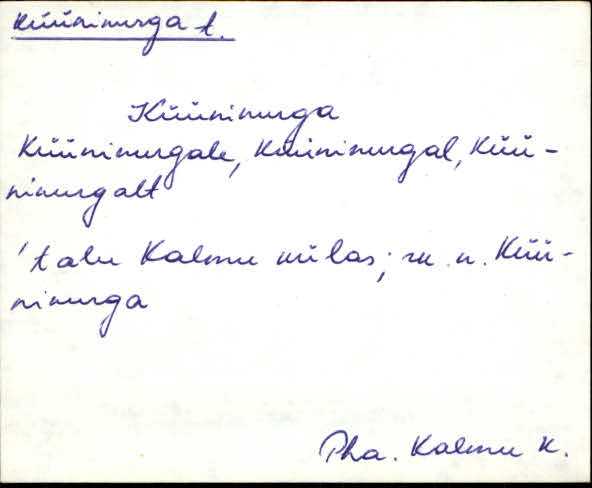 Küüninurga t.
Küüninurga
Küüninurgale, Küüninurgal, Küü-
ninurgalt
'talu Kalmu külas; rn. n. Küü-
ninurga
Pha. Kalmu k.